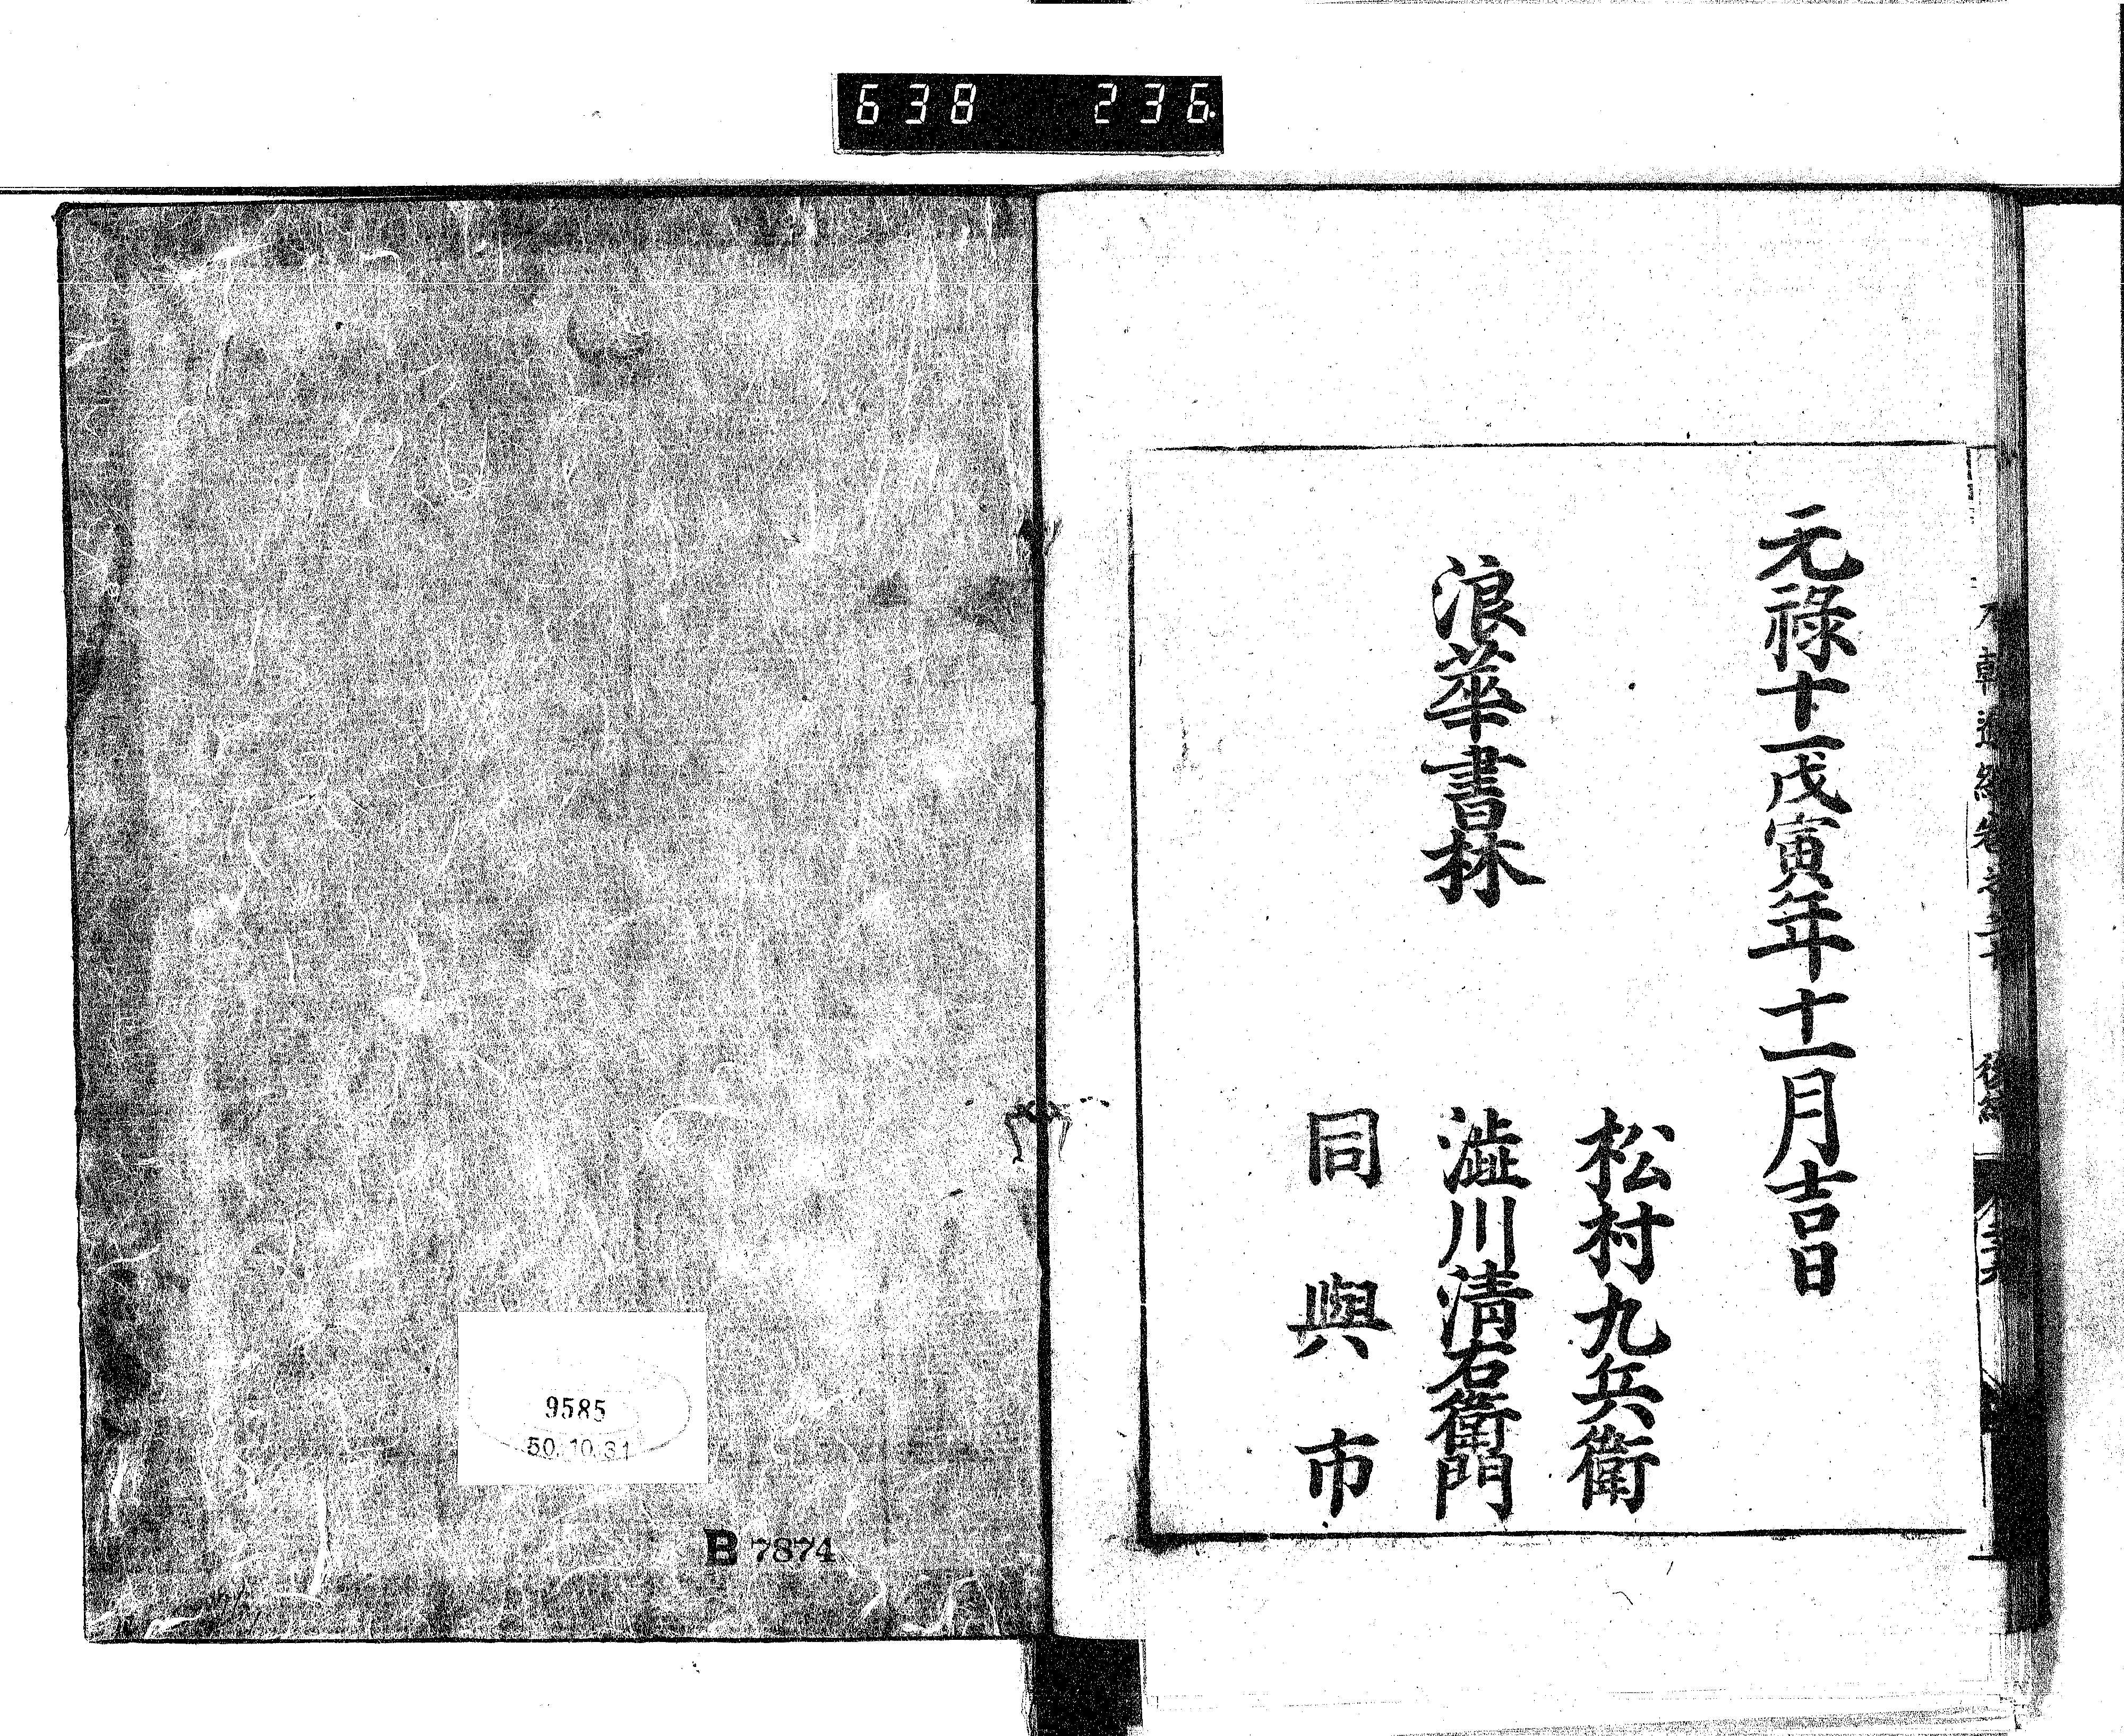 638 236
元祿十一戊寅年十一月吉日
松村九兵衛
浪華書林 澁川清右衛門
同與市
9585
50.10.31
B 7874